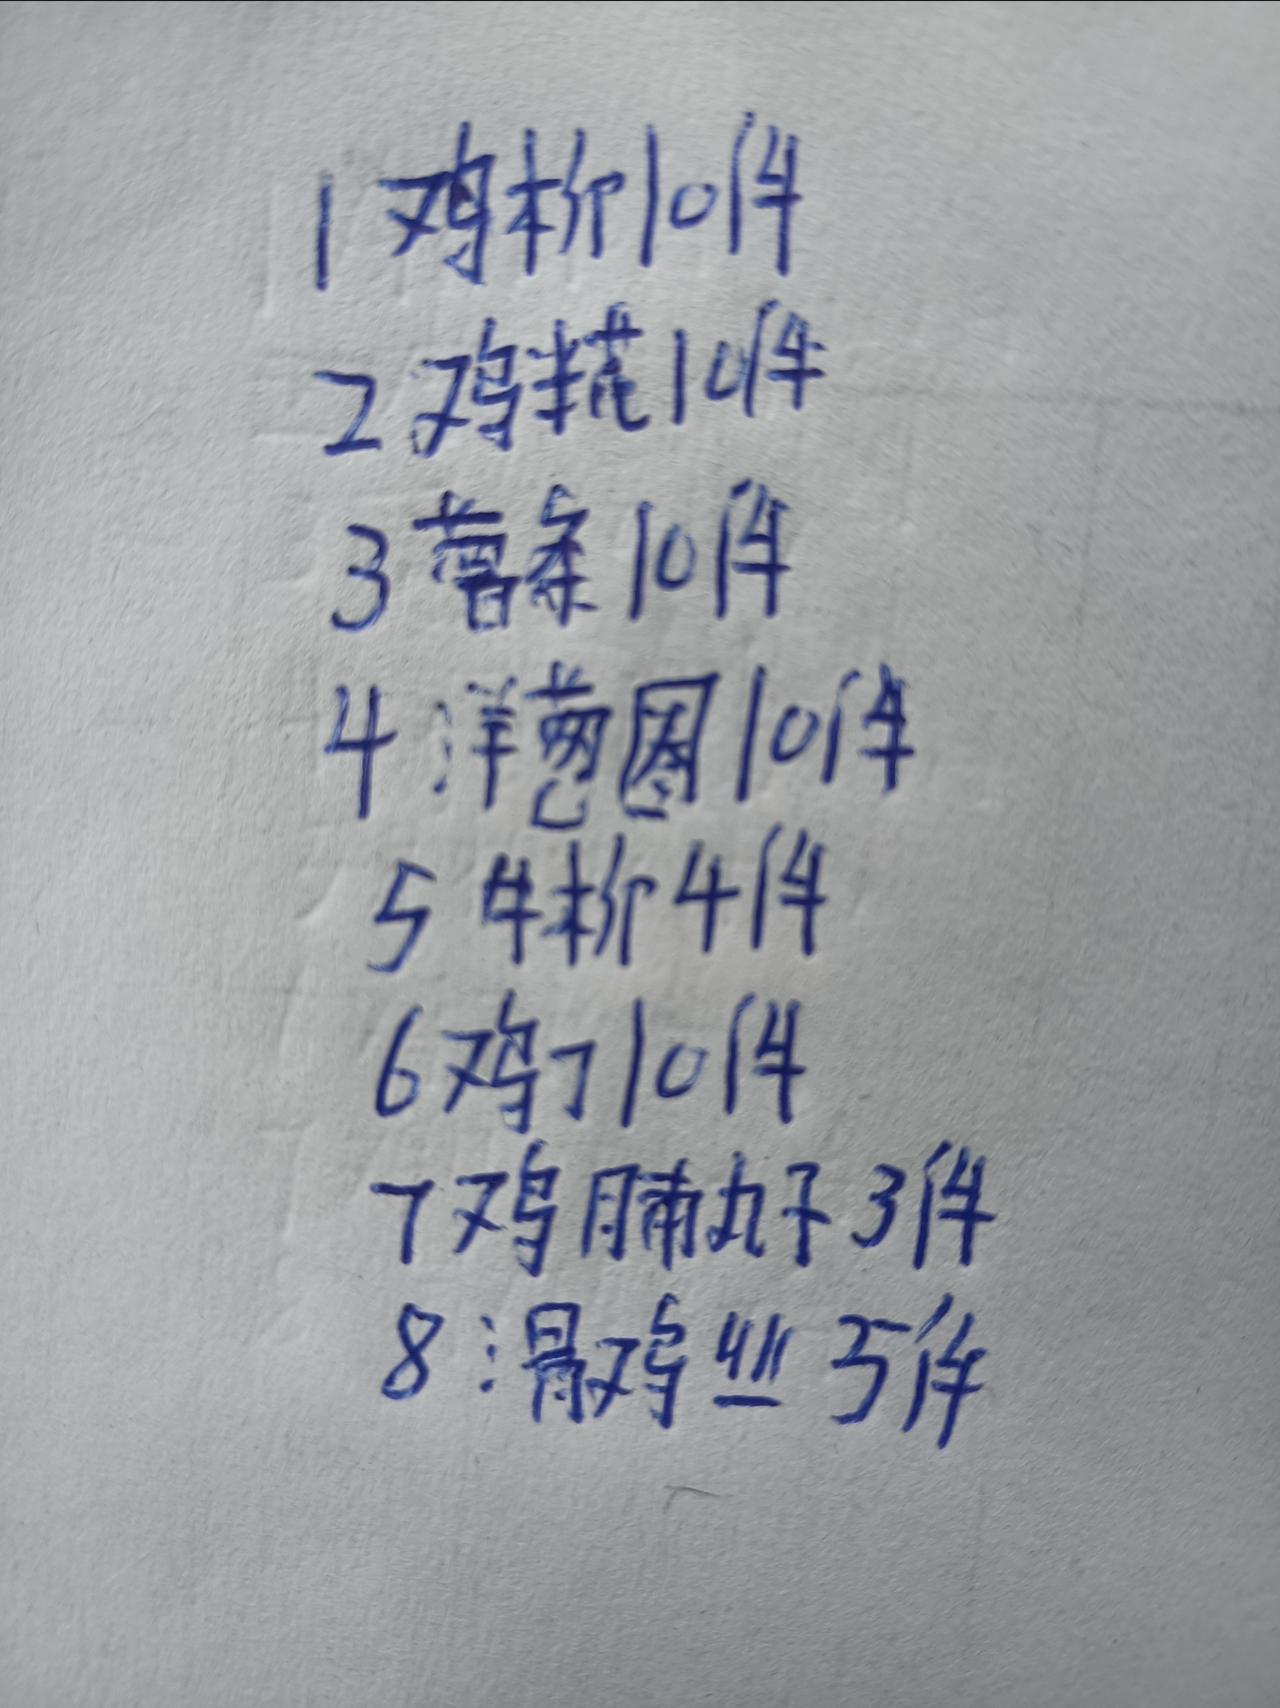 1 鸡柳10件
2 鸡糀10件
3 薯条10件
4 洋葱圈10件
5 牛柳4件
6 鸡丁10件
7 鸡脯丸子3件
8 滑鸡丝5件